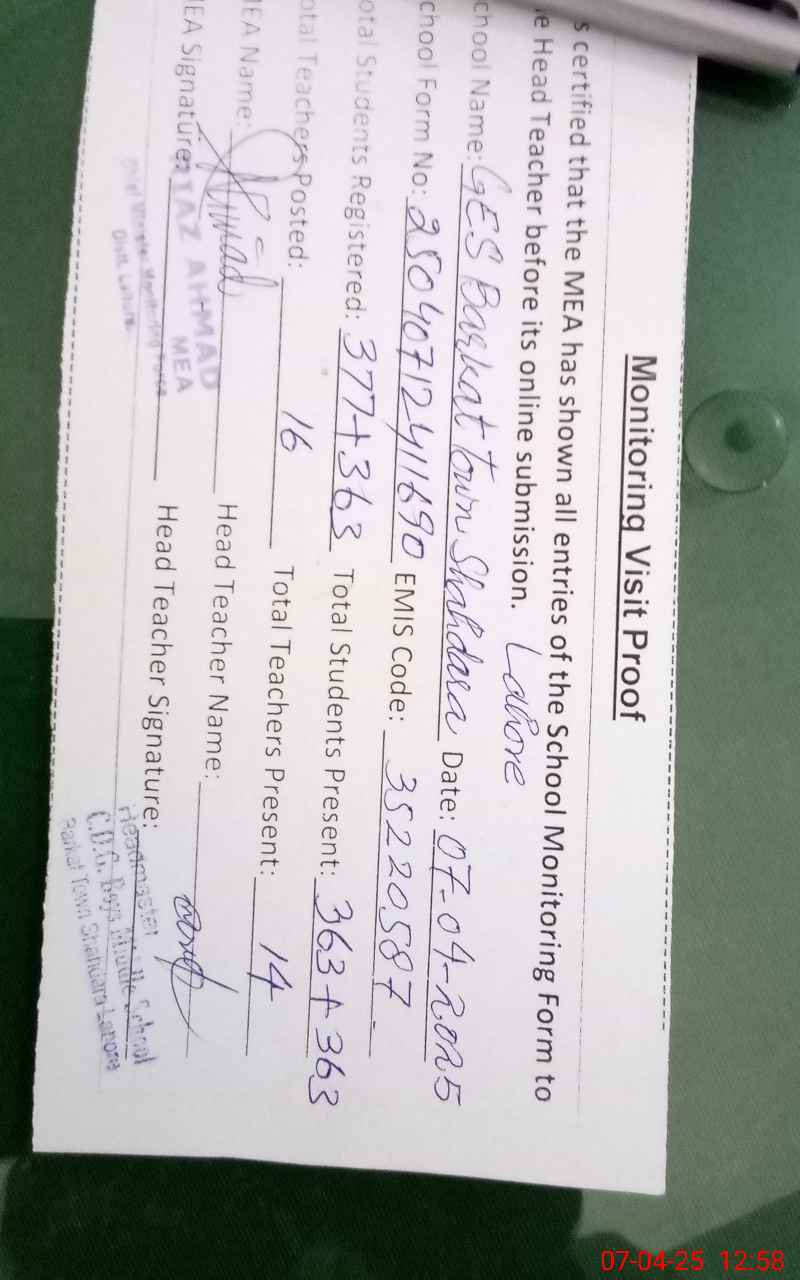 Monitoring Visit Proof
s certified that the MEA has shown all entries of the School Monitoring Form to
e Head Teacher before its online submission.
Lahore
chool Name: GES Barkat Town Shahdara Date: 07-04-2025
chool Form No: 250407124411690 EMIS Code: 35220587
otal Students Registered: 377+363 Total Students Present: 363+363
otal Teachers Posted: 16 Total Teachers Present: 14
IEA Name: Head Teacher Name:
IEA Signature: Head Teacher Signature:
TAZ AHMAD
MEA
Headmaster
C.D.G. Boys Middle School
Barkat Town Shahdara Lahore
07-04-25 12:58